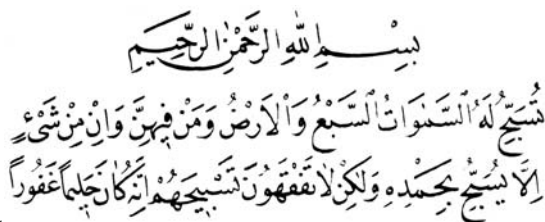 بِسْمِ اللهِ الرَّحْمٰنِ الرَّحِيمِ
تُسَبِّحُ لَهُ السَّمٰوَاتُ السَّبْعُ وَالْاَرْضُ وَمَنْ فِيهِنَّ وَاِنْ مِنْ شَىْءٍ
اِلَّا يُسَبِّحُ بِحَمْدِهِ وَلٰكِنْ لَا تَفْقَهُونَ تَسْبِيحَهُمْ اِنَّهُ كَانَ حَلِيمًا غَفُورًا